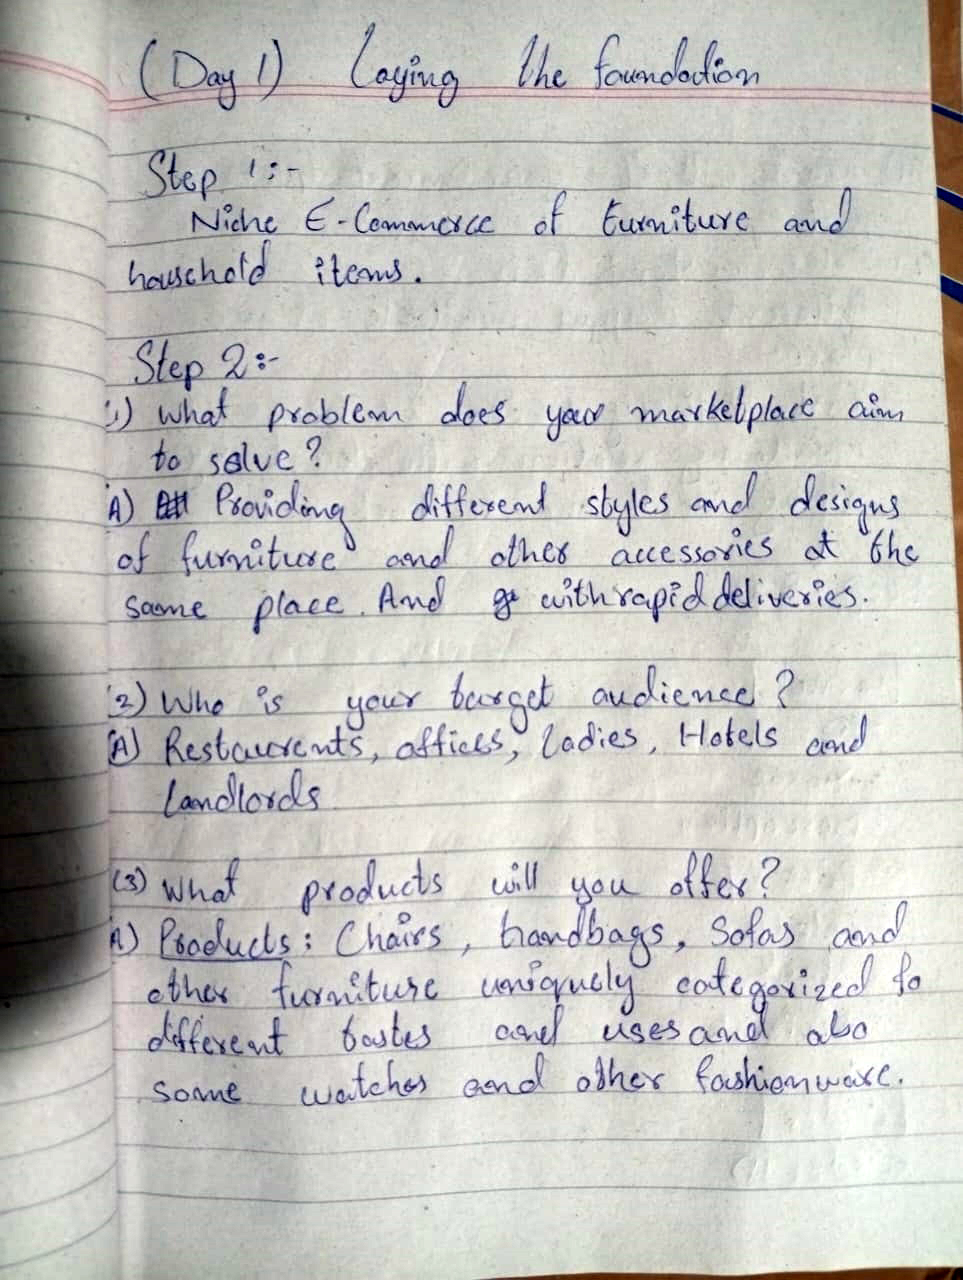 (Day 1) Laying the foundation
Step 1:-
Niche E-Commerce of furniture and
household items.
Step 2:-
1) What problem does your marketplace aim
to solve?
A) Providing different styles and designs
of furniture and other accessories at the
same place. And with rapid deliveries.
(2) Who is your target audience?
(A) Restaurents, offices, Ladies, Hotels and
Landlords
(3) What products will you offer?
A) Products: Chairs, handbags, Sofas and
other furniture uniquely categorized fo
different tastes and uses and also
some watches and other fashionware.